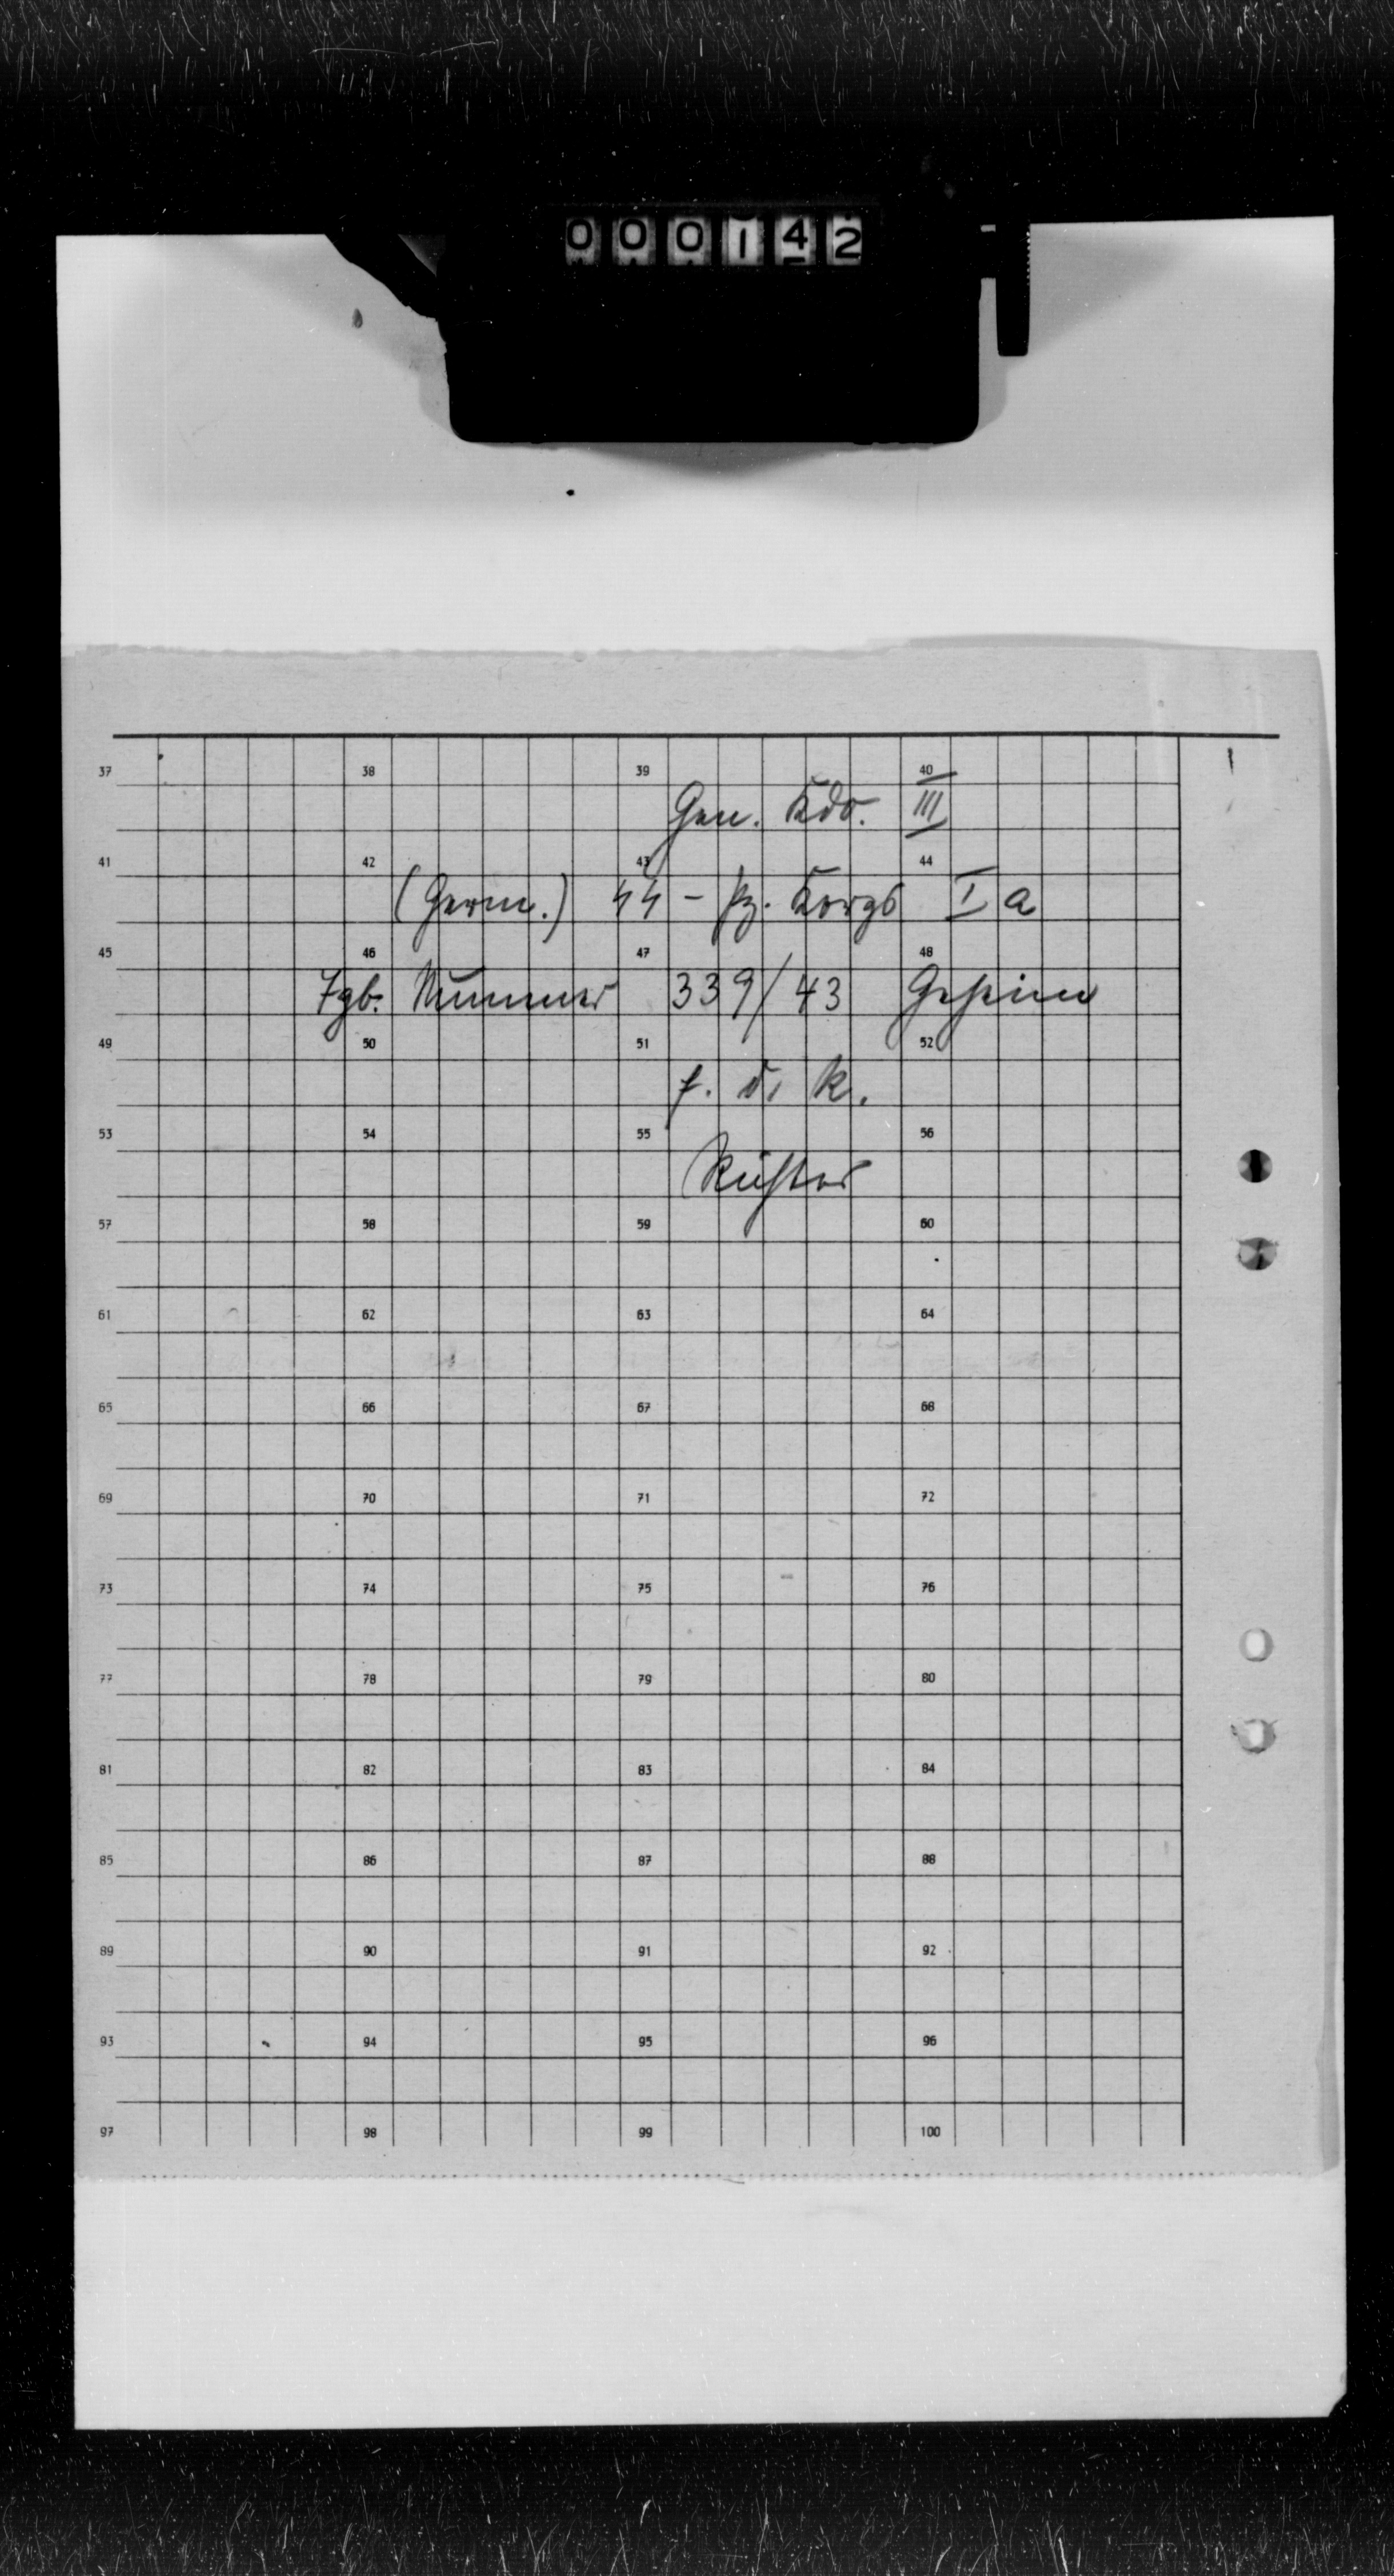 000142
37 38 39 40
Gen. Kdo. III
41 42 43 44
(Germ.) SS - Pz. Korps Ia
45 46 47 48
Tgb. Nummer 339/43 Geheim
49 50 51 52
f. d. R.
53 54 55 56
57 58 59 60
61 62 63 64
65 66 67 68
69 70 71 72
73 74 75 76
77 78 79 80
81 82 83 84
85 86 87 88
89 90 91 92
93 94 95 96
97 98 99 100